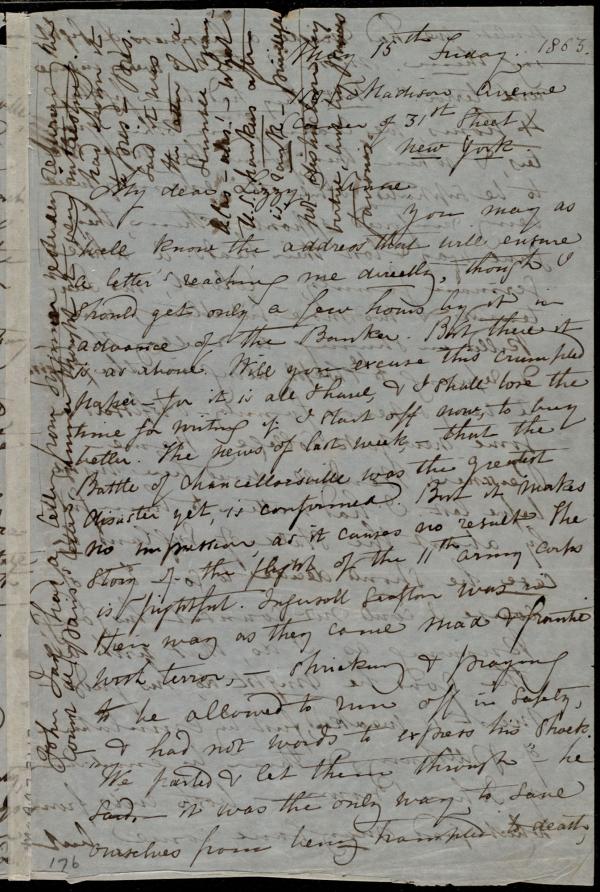 May 15th Friday. 1863.
Madison Avenue
Corner of 31st Street
New York.
My dear Lizzy & Anne
You may as
well know the address that will ensure
a letter's reaching me directly, though I
should get only a few hours by it in
advance of the Banker. But there it
is, as above. Will you excuse this crumpled
paper – for it is all I have, & I shall lose the
time for writing if I start off now, to buy
better. The news of last week, that the
Battle of Chancellorsville was the greatest
disaster yet, is confirmed. But it makes
no impression, as it causes no result. The
story of the flight of the 11th army corps
is frightful. Ingersoll Grafton was in
their way as they came mad & frantic
with terror, – shrieking & praying
to be allowed to run off in safety,
– & had not words to express his shock.
"We parted & let them through" he
said – it was the only way, to save
ourselves from being trampled to death,
176
John Jay had a letter from
Count de Paris
very interesting.
had them to
said it was
the letter of a
alas! – what
U.S. thanks